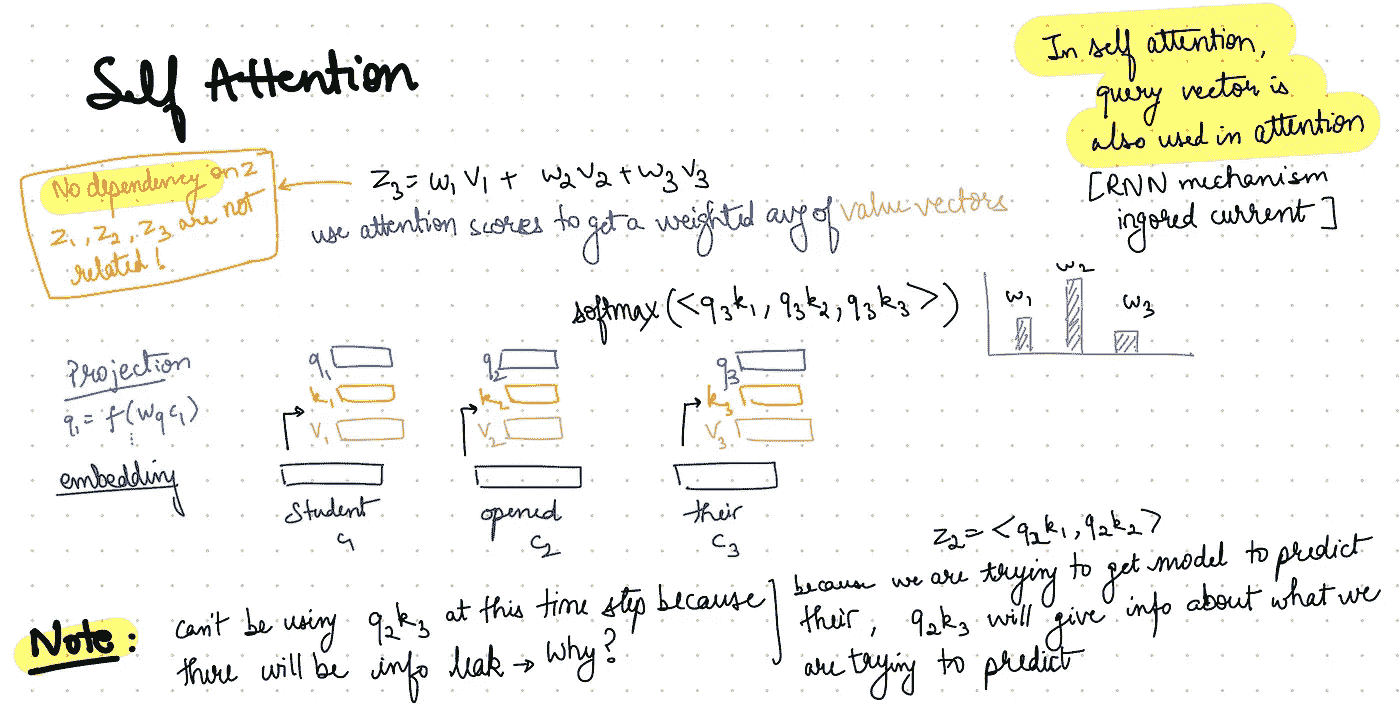 Self Attention
In self attention,
query vector is
also used in attention
[RNN mechanism
ingored current]
No dependency on z
z₁, z₂, z₃ are not
related!
z₃ = w₁v₁ + w₂v₂ + w₃v₃
use attention scores to get a weighted avg of value vectors
softmax(<q₃k₁, q₃k₂, q₃k₃>)
w₁ w₂ w₃
Projection
q₁ = f(Wq c₁)
⋮
embedding
q₁ q₂ q₃
k₁ k₂ k₃
v₁ v₂ v₃
Student opened their
c₁ c₂ c₃
z₂ = <q₂k₁, q₂k₂>
Note: can't be using q₂k₃ at this time step because
there will be info leak → Why?
because we are trying to get model to predict
their, q₂k₃ will give info about what we
are trying to predict